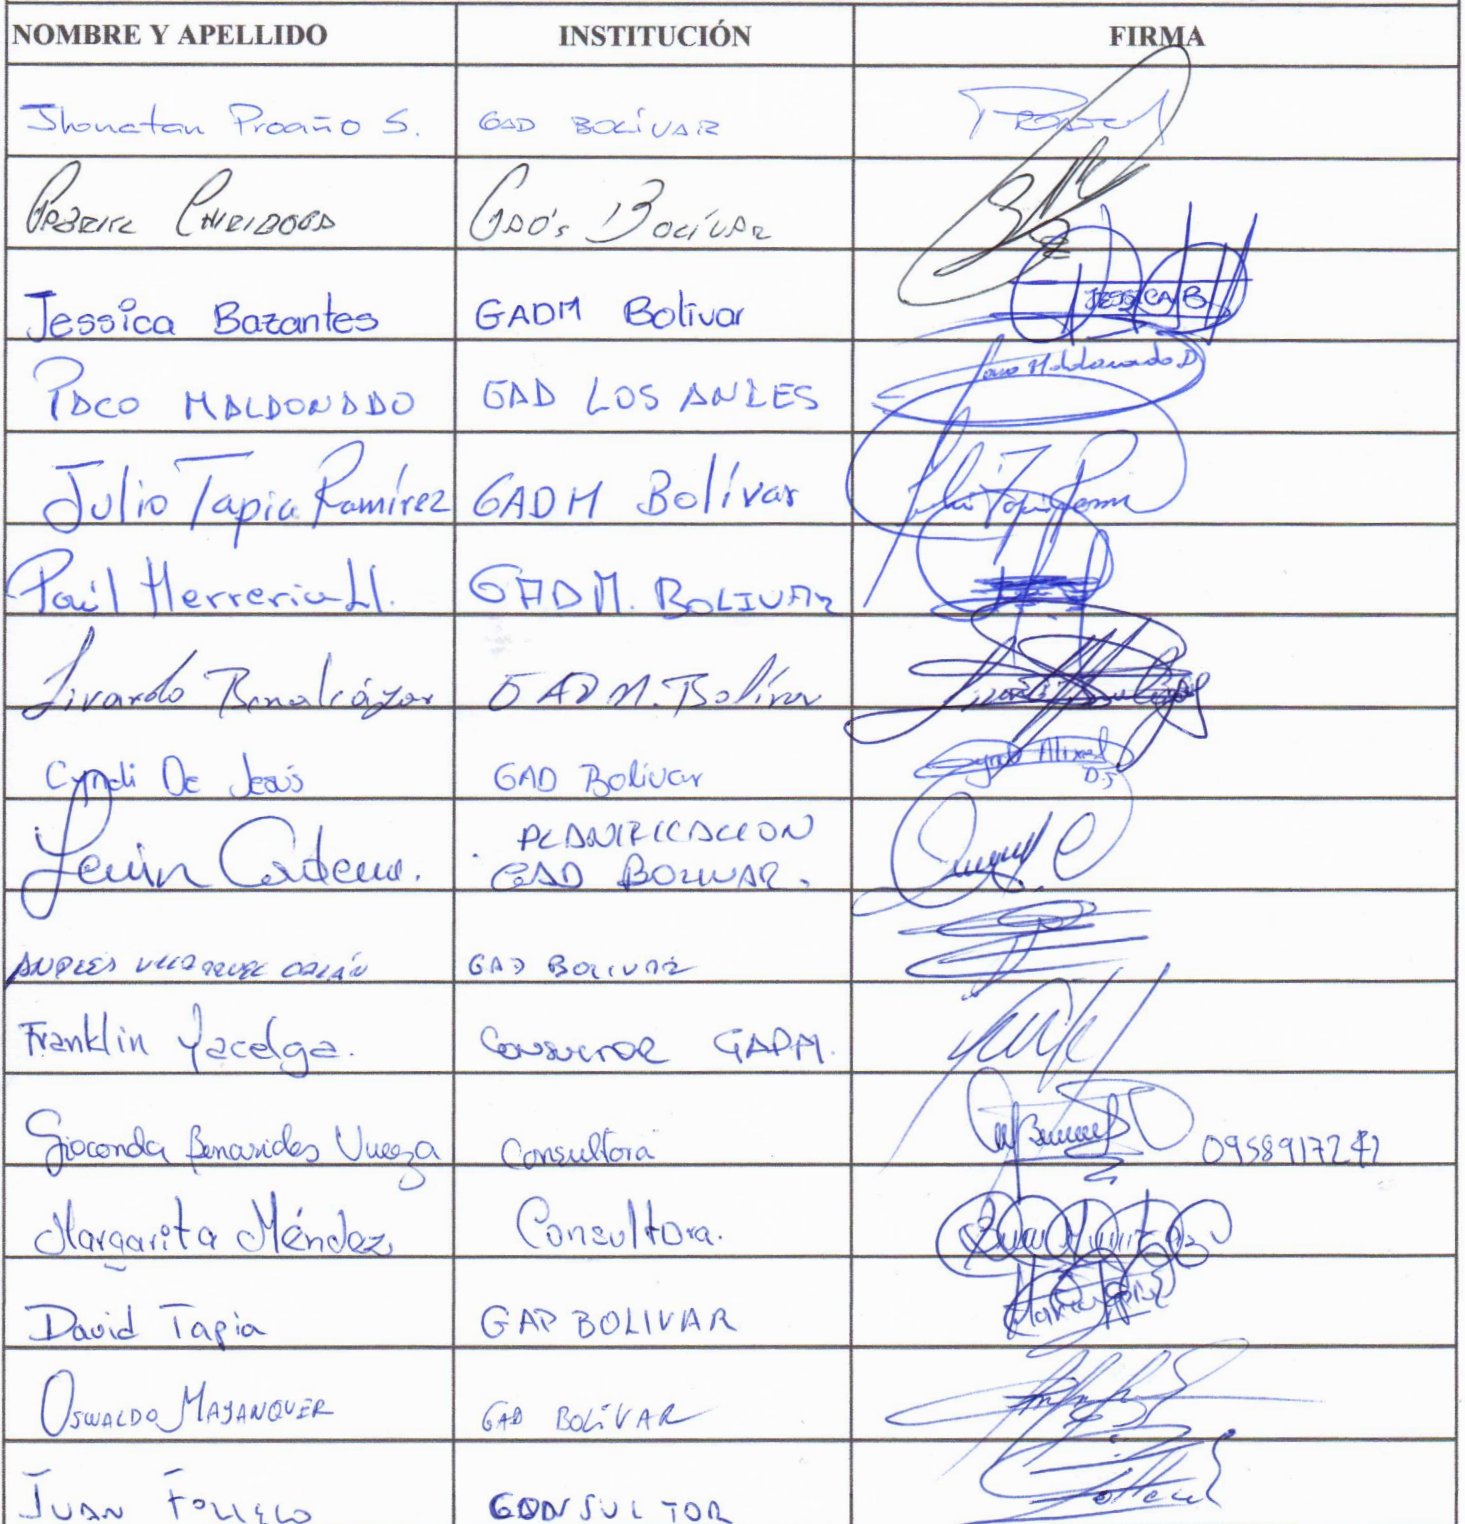 NOMBRE Y APELLIDO INSTITUCIÓN FIRMA
Jhonatan Proaño S. GAD BOLÍVAR
GABRIEL CHIRIBOGA GAD'S BOLÍVAR
Jessica Bazantes GADM Bolívar JESSICA B
PACO MALDONADO GAD LOS ANDES Paco Maldonado D
Julio Tapia Ramírez GADM Bolívar
Paúl Herrería H. GADM. BOLIVAR
Livardo Benalcázar GADM. Bolívar
Cyndi De Jesús GAD Bolívar
D.J
PLANIFICACION
Lenin Cadena. GAD BOLIVAR.
ANDRES GAD BOLIVAR
Franklin Yacelga. CONSULTOR GADM.
Gioconda Benavides Consultora
Margarita Méndez Consultora.
David Tapia GAD BOLIVAR
OSWALDO MAYANQUER GAD BOLÍVAR
JUAN CONSULTOR